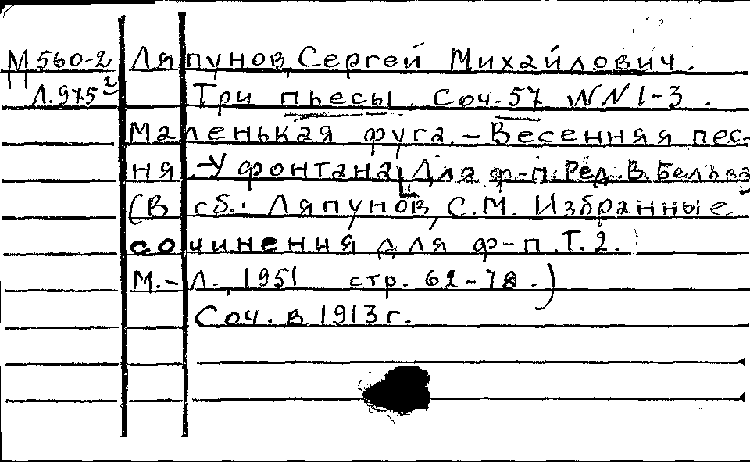 М 560-2 Ляпунов, Сергей Михайлович.
Л.975² Три пьесы. Соч. 57 NN 1-3.
Маленькая фуга.-Весенняя пес-
ня.-У фонтана. Для ф-п. Ред. В. Бельва
(В сб.: Ляпунов, С.М. Избранные
сочинения для ф-п. Т.2.
М.-Л., 1951 стр. 62-78.)
Соч. в 1913 г.